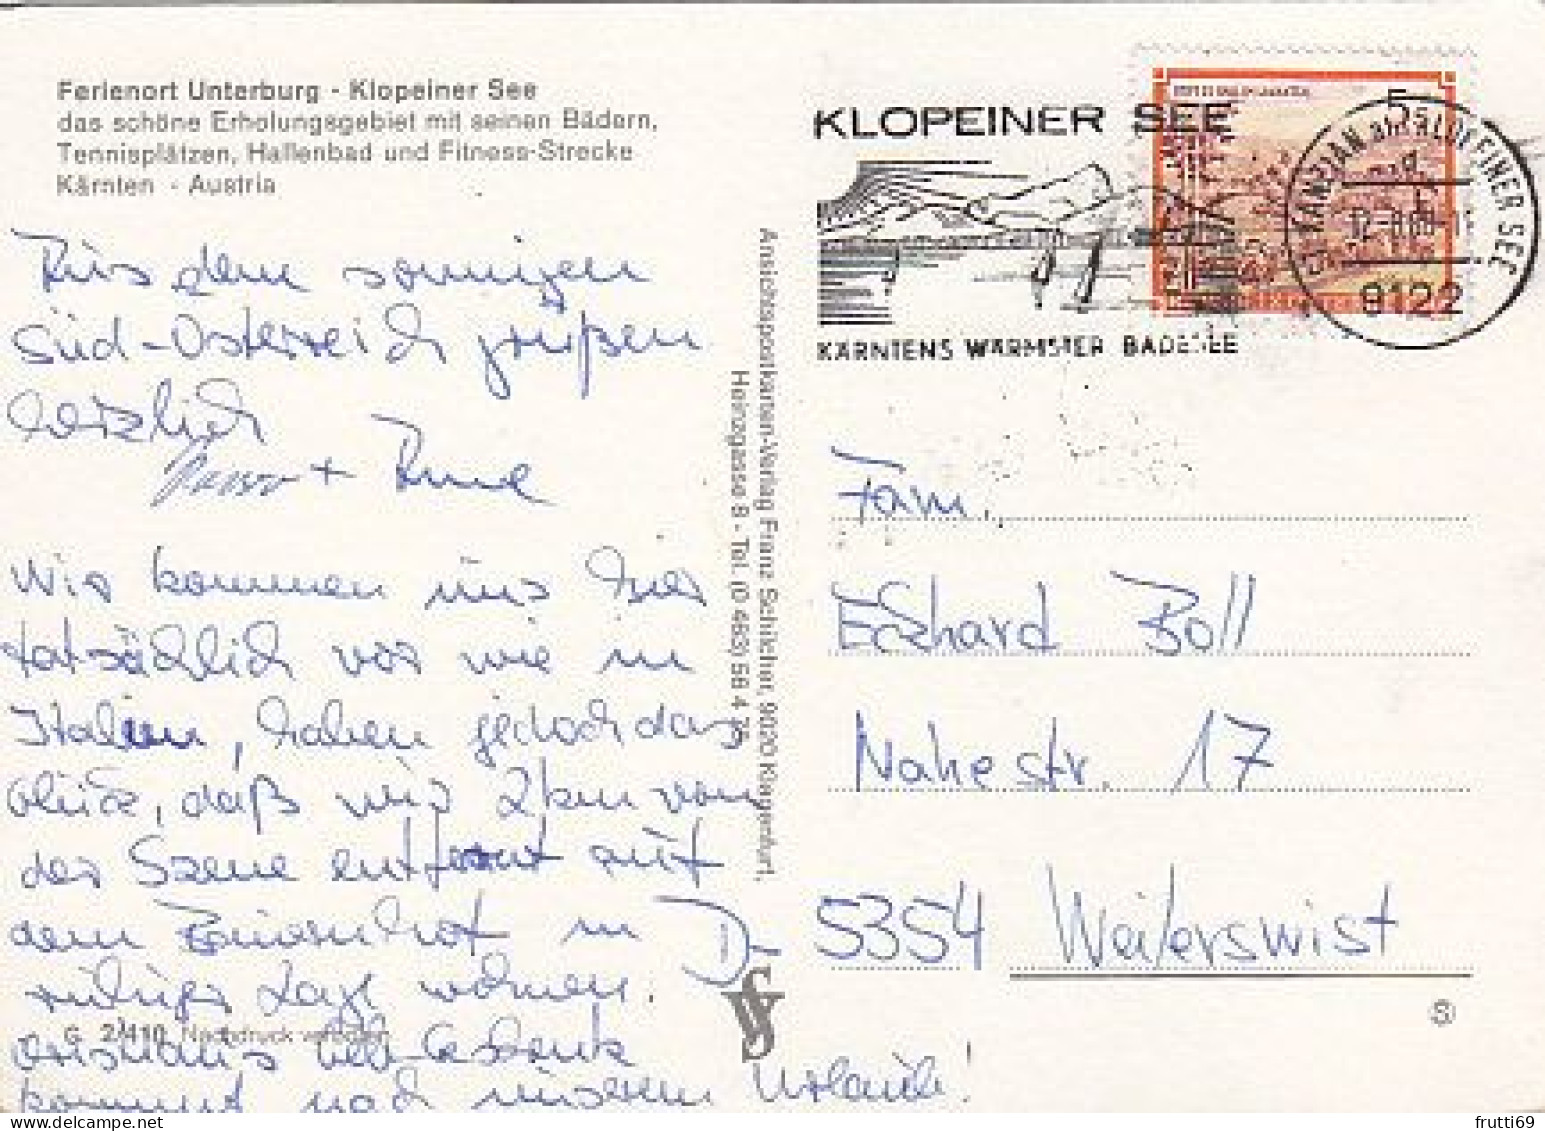 Ferienort Unterburg - Klopeiner See
das schöne Erholungsgebiet mit seinen Bädern,
Tennisplätzen, Hallenbad und Fitness-Strecke
Kärnten - Austria
Aus dem sonnigen
Süd-Österreich grüßen
herzlich
+ Anne
Wir kommen uns hier
tatsächlich vor wie in
Italien, haben jedoch das
Glück, daß wir 2km von
der Szene entfernt auf
dem Bauernhof in
ruhiger Lage wohnen. Dr
Geschenk
kommt nach unserem Urlaub!
G 2/410 Nachdruck verboten
Ansichtspostkarten-Verlag Franz Schilcher, 9020 Klagenfurt,
Heinzgasse 9 - Tel. (0 463) 58 4 75
KLOPEINER SEE
KÄRNTENS WÄRMSTER BADESEE
5
KANZIAN am KLOPEINER SEE
9122
Fam.
Eckhard Boll
Nahestr. 17
5354 Weilerswist
S
frutti69